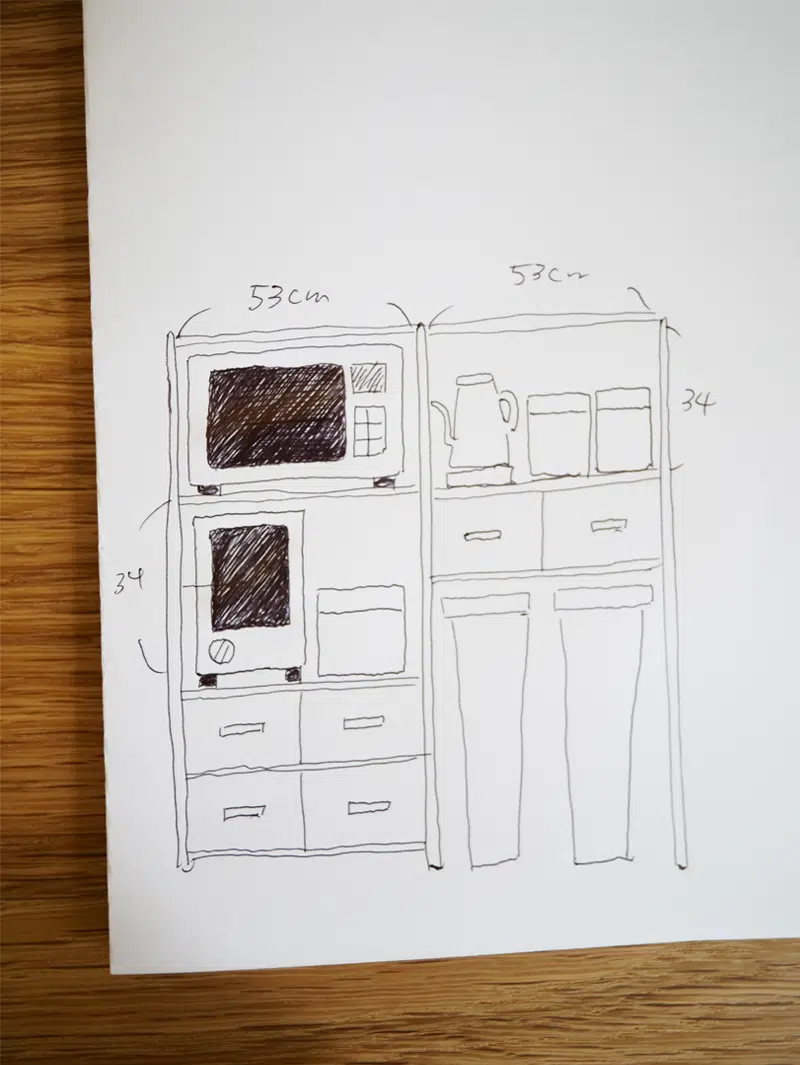 53cm
53cm
34
34